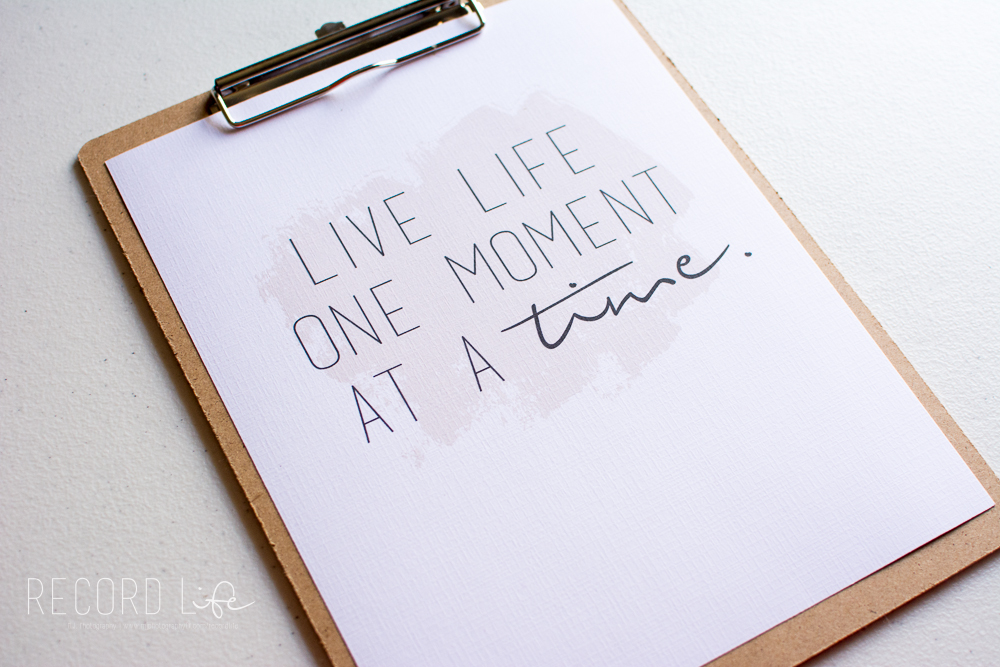 LIVE LIFE
ONE MOMENT
AT A time.
RECORD Life